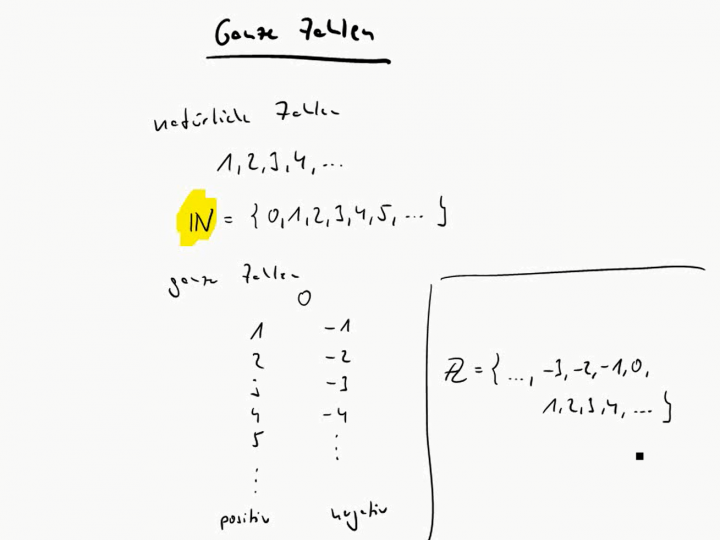 Ganze Zahlen
natürliche Zahlen
1, 2, 3, 4, ...
ℕ = { 0, 1, 2, 3, 4, 5, ... }
ganze Zahlen
0
1 -1
2 -2
3 -3
4 -4
5 ⋮
⋮
positiv negativ
ℤ = { ..., -3, -2, -1, 0,
1, 2, 3, 4, ... }